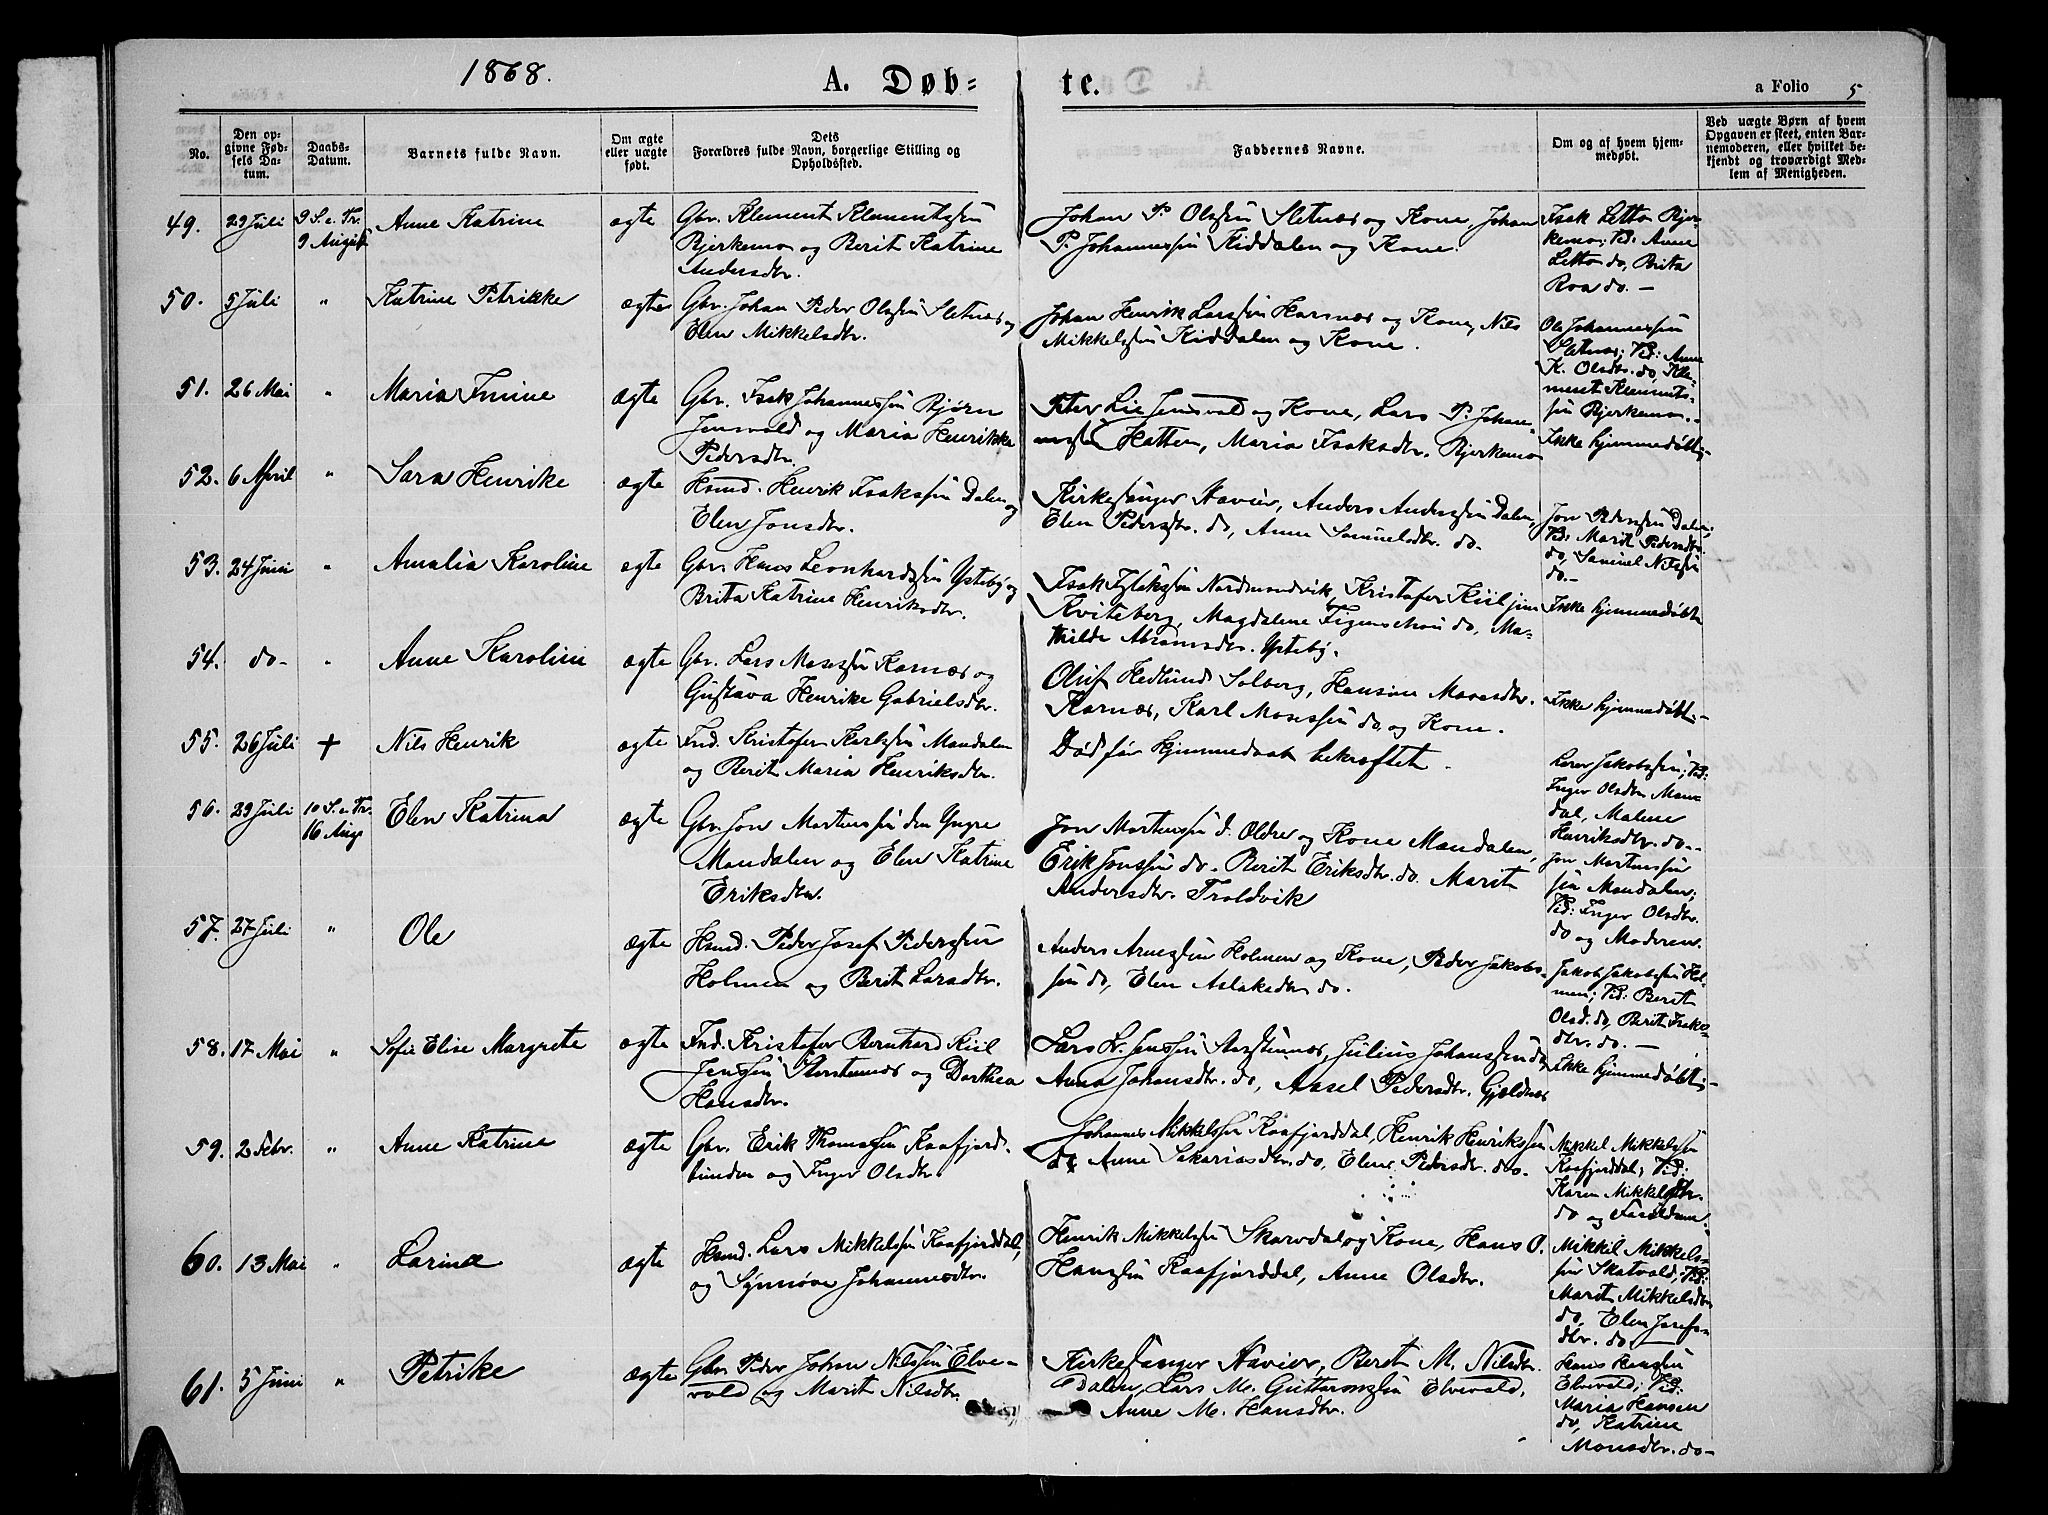 1868.
A. Døb=
te.
a Folio 5
No.
Den op=
givne Fød=
sels Da=
tum.
Daabs=
Datum.
Barnets fulde Navn.
Om ægte
eller uægte
født.
Dets
Forældres fulde Navn, borgerlige Stilling og
Opholdssted.
Faddernes Navne.
Om og af hvem hjem=
medøbt.
Ved uægte Børn af hvem
Opgaven er skeet, enten Bar=
nemoderen, eller hvilket be=
kjendt og troværdigt Med=
lem af Menigheden.
49.
29 Juli
9 S. e. Tr.
9 August
Anne Katrine
ægte
Gbr. Klement Klementssen
Bjerkemo og Berit Katrine
Andersdtr.
Johan P. Olssen Sletnæs og Kone, Johan
P. Johannessen Kiddalen og Kone.
Isak Letto Bjer-
kemo; Vid: Anne
Letto do, Brita
Roa do. -
50.
5 Juli
"
Katrine Petrikke
ægte
Gbr. Johan Peder Olssen Sletnæs og
Elen Mikkelsdtr.
Johan Henrik Larssen Harsnæs og Kone, Nils
Mikkelssen Kiddalen og Kone.
Ole Johannessen
Sletnæs; Vid: Anne
K. Olsdtr. do, Kle-
ment Klements-
sen Bjerkemo. -
51.
26 Mai
"
Maria
ægte
Gbr. Isak Johannessen Bjørn
Jensvold og Maria Henrikke
Pedersdtr.
Peter Lie Jensvold og Kone, Lars P. Johan-
nessen Hatten, Maria Isaksdtr. Bjerkemo
Ikke hjemmedøbt -
52.
6 April
"
Sara Henrike
ægte
Hsmd. Henrik Isakssen Dalen og
Elen Jonsdtr.
Kirkesanger Havier, Anders Anderssen Dalen,
Elen Pedersdtr. do, Anne Samuelsdtr. do.
Jon Pederssen Dalen;
Vid: Marit Pedersdtr.
do, Samuel Nilssen
do. -
53.
24 Juni
"
Amalia Karoline
ægte
Gbr. Hans Leonhardssen Ysteby og
Brita Katrine Henriksdtr.
Isak Isakssen Nordmandvik, Kristofer Kiil jun
Kviteberg, Magdalene Figenschou do, Ma-
thilde Abramsdtr. Ysteby.
Ikke hjemmedøbt
54.
do -
"
Anne Karoline
ægte
Gbr. Lars Mosessen Karnæs og
Gustava Henrike Gabrielsdtr.
Oluf Hedlund Solberg, Hansine Mosesdtr.
Karnæs, Karl Mosessen do og Kone.
Ikke hjemmedøbt -
55.
26 Juli
+
Nils Henrik
ægte
Ind. Kristofer Karlssen Mandalen
og Berit Maria Henriksdtr.
Død før Hjemmedaab bekræftet.
Lars Jakobssen; Vid:
Inger Olsdtr. Man-
dal, Malene
Henriksdtr. do. -
56.
29 Juli
10 S. e. Tr.
16 Aug.
Elen Katrina
ægte
Gbr. Jon Mortenssen den Yngre
Mandalen og Elen Katrine
Eriksdtr.
Jon Mortenssen d. Oldre og Kone Mandalen,
Erik Jonssen do. Berit Eriksdtr. do. Marit
Andersdtr. Troldvik
Jon Mortenssen
sen Mandalen;
Vid: Inger Olsdtr.
do og Moderen.
57.
27 Juli
"
Ole
ægte
Hsmd. Peder Josef Pederssen
Holmen og Berit Larsdtr.
Anders Arnessen Holmen og Kone, Peder Jakobs-
sen do, Elen Aslaksdtr. do.
Jakob Jakobssen Hol-
men; Vid: Berit
Olsd. do, Berit Isaks-
dtr. do. -
58.
17 Mai
"
Sofie Elise Margrete
ægte
Ind. Kristofer Bernhard Kiil
Jenssen Storstennæs og Dorthea
Hansdtr.
Lars Jenssen Storstennæs, Julius Johanssen do,
Anna Johansdtr. do, Assel Pedersdtr. Gjeldnæs
Ikke hjemmedøbt -
59.
2 Febr.
"
Anne Katrine
ægte
Gbr. Erik Thomassen Kaafjord-
bunden og Inger Olsdtr.
Johannes Mikkelssen Kaafjorddal, Henrik Henrikssen
do Anne Sakariasdtr. do, Elene Pedersdtr. do.
Mikkel Mikkelssen
Kaafjorddal; Vid:
Karen Mikkelsdtr.
do og Forældrene.
60.
13 Mai
"
Larina
ægte
Hsmd. Lars Mikkelssen Kaafjorddal,
og Synnøve Johannesdtr.
Henrik Mikkelssen Skarvdal og Kone, Hans O.
Hanssen Kaafjorddal, Anne Olsdtr.
Mikkel Mikkels-
sen Skatvald; Vid:
Marit Mikkelsdtr.
do, Elen Josefs-
dtr. do -
61.
5 Juni
"
Petrike
ægte
Gbr. Peder Johan Nilssen Elve-
vold og Marit Nilsdtr.
Kirkesanger Havier, Berit M. Nilsdtr.
Dalen, Lars M. Guttormssen Elvevold,
Anne M. Hansdtr.
Hans Hanssen
Elvevold; Vid:
Maria Hansen
do, Katrine
Monsdtr. do -